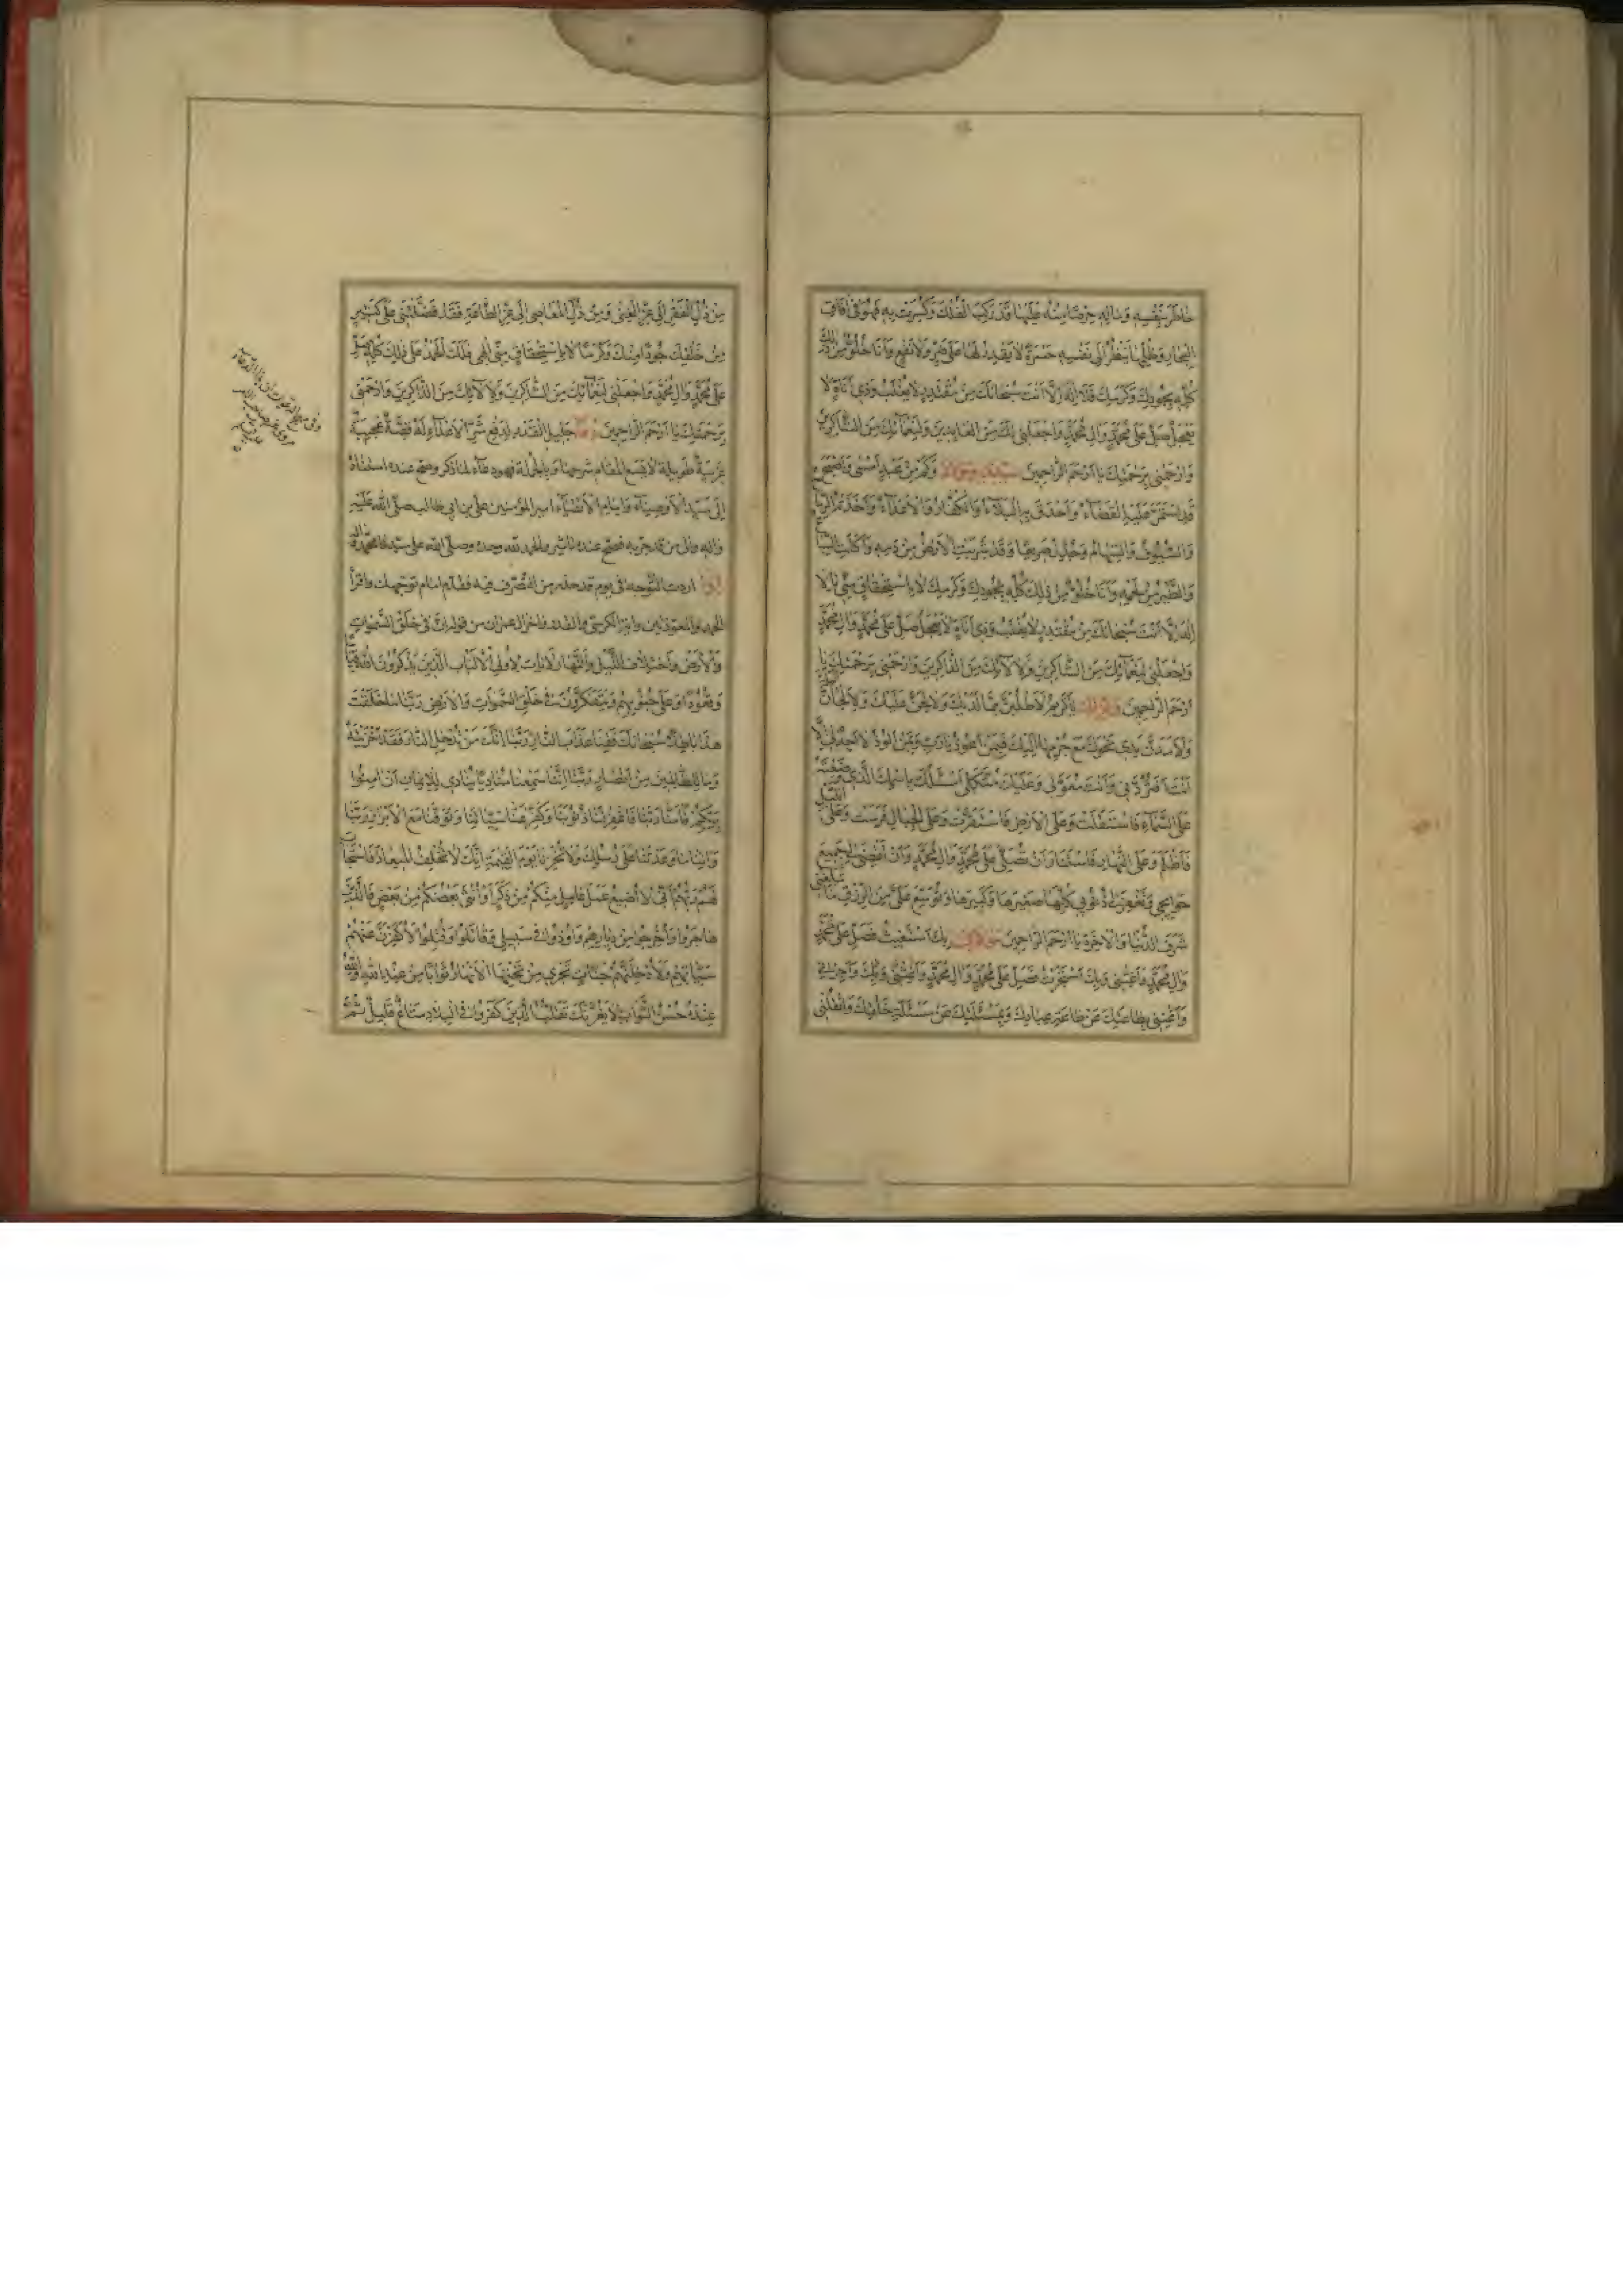 خَاطَرَ بِنَفْسِهِ وَمَالِهِ حِرْصًا مِنْهُ قَدْ رَكِبَ الْفُلْكَ وَكُسِرَتْ بِهِ فَهُوَ فِي آفَاقِ
الْبِحَارِ وَظُلَمِهَا يَنْظُرُ إِلَى نَفْسِهِ حَسْرَةً لَا يَقْدِرُ لَهَا عَلَى ضَرٍّ وَلَا نَفْعٍ وَأَنَا خِلْوٌ مِنْ ذَلِكَ
كُلِّهِ بِجُودِكَ وَكَرَمِكَ فَلَا إِلَهَ إِلَّا أَنْتَ سُبْحَانَكَ مِنْ مُقْتَدِرٍ لَا يُغْلَبُ وَذِي أَنَاةٍ لَا
يَعْجَلُ صَلِّ عَلَى مُحَمَّدٍ وَآلِ مُحَمَّدٍ وَاجْعَلْنِي لَكَ مِنَ الْعَابِدِينَ وَلِنَعْمَائِكَ مِنَ الشَّاكِرِينَ
وَارْحَمْنِي بِرَحْمَتِكَ يَا أَرْحَمَ الرَّاحِمِينَ وَكَمْ مِنْ عَبْدٍ أَمْسَى وَأَصْبَحَ
قَدِ اسْتَمَرَّ عَلَيْهِ الْقَضَاءُ وَأَحْدَقَ بِهِ الْبَلَاءُ وَالْكُفَّارُ وَالْأَعْدَاءُ وَأَخَذَتْهُ الرِّمَاحُ
وَالسُّيُوفُ وَالسِّهَامُ وَجُدِّلَ صَرِيعًا وَقَدْ شَرِبَتِ الْأَرْضُ مِنْ دَمِهِ وَأَكَلَتِ السِّبَاعُ
وَالطَّيْرُ مِنْ لَحْمِهِ وَأَنَا خِلْوٌ مِنْ ذَلِكَ كُلِّهِ بِجُودِكَ وَكَرَمِكَ لَا بِاسْتِحْقَاقٍ مِنِّي يَا لَا
إِلَهَ إِلَّا أَنْتَ سُبْحَانَكَ مِنْ مُقْتَدِرٍ لَا يُغْلَبُ وَذِي أَنَاةٍ لَا يَعْجَلُ صَلِّ عَلَى مُحَمَّدٍ وَآلِ مُحَمَّدٍ
وَاجْعَلْنِي لِنَعْمَائِكَ مِنَ الشَّاكِرِينَ وَلِآلَائِكَ مِنَ الذَّاكِرِينَ وَارْحَمْنِي بِرَحْمَتِكَ يَا
أَرْحَمَ الرَّاحِمِينَ يَا كَرِيمُ لَأَطْلُبَنَّ مِمَّا لَدَيْكَ وَلَأُلِحَّنَّ عَلَيْكَ وَلَأَلْجَأَنَّ
وَلَأَمُدَّنَّ يَدِي نَحْوَكَ مَعَ جُرْمِهَا إِلَيْكَ فَبِمَنْ أَعُوذُ يَا رَبِّ وَبِمَنْ أَلُوذُ لَا أَحَدَ لِي إِلَّا
أَنْتَ أَفَتَرُدُّنِي وَأَنْتَ مُعَوَّلِي وَعَلَيْكَ مُتَّكَلِي أَسْئَلُكَ بِاسْمِكَ الَّذِي وَضَعْتَهُ
عَلَى السَّمَاءِ فَاسْتَقَلَّتْ وَعَلَى الْأَرْضِ فَاسْتَقَرَّتْ وَعَلَى الْجِبَالِ فَرَسَتْ وَعَلَى اللَّيْلِ
فَأَظْلَمَ وَعَلَى النَّهَارِ فَاسْتَنَارَ أَنْ تُصَلِّيَ عَلَى مُحَمَّدٍ وَآلِ مُحَمَّدٍ وَأَنْ تَقْضِيَ لِي جَمِيعَ
حَوَائِجِي وَتَغْفِرَ لِي ذُنُوبِي كُلَّهَا صَغِيرَهَا وَكَبِيرَهَا وَتُوَسِّعَ عَلَيَّ مِنَ الرِّزْقِ مَا تُبَلِّغُنِي
شَرَفَ الدُّنْيَا وَالْآخِرَةِ يَا أَرْحَمَ الرَّاحِمِينَ بِكَ اسْتَغَثْتُ فَصَلِّ عَلَى مُحَمَّدٍ
وَآلِ مُحَمَّدٍ وَأَغِثْنِي وَبِكَ اسْتَجَرْتُ فَصَلِّ عَلَى مُحَمَّدٍ وَآلِ مُحَمَّدٍ وَأَجِرْنِي
وَأَغْنِنِي بِطَاعَتِكَ عَنْ طَاعَةِ عِبَادِكَ وَبِمَسْئَلَتِكَ عَنْ مَسْئَلَةِ خَلْقِكَ وَانْقُلْنِي
مِنْ ذُلِّ الْفَقْرِ إِلَى عِزِّ الْغِنَى وَمِنْ ذُلِّ الْمَعَاصِي إِلَى عِزِّ الطَّاعَةِ فَقَدْ فَضَّلْتَنِي عَلَى كَثِيرٍ
مِنْ خَلْقِكَ جُودًا مِنْكَ وَكَرَمًا لَا بِاسْتِحْقَاقٍ مِنِّي إِلَهِي فَلَكَ الْحَمْدُ عَلَى ذَلِكَ كُلِّهِ صَلِّ
عَلَى مُحَمَّدٍ وَآلِ مُحَمَّدٍ وَاجْعَلْنِي لِنَعْمَائِكَ مِنَ الشَّاكِرِينَ وَلِآلَائِكَ مِنَ الذَّاكِرِينَ وَارْحَمْنِي
بِرَحْمَتِكَ يَا أَرْحَمَ الرَّاحِمِينَ دعاء جليل القدر لدفع شر الأعداء له قصة عجيبة
غريبة طويلة لا يسع المقام شرحها وبالجملة فهو دعاء لما ذكر وصح عنده اسناده
إلى سيد الأوصياء وإمام الأتقياء أمير المؤمنين علي بن أبي طالب صلى الله عليه
وآله وقال من قد جربه فصح عنده تأثيره والحمد لله وحده وصلى الله على سيدنا محمد وآله
إذا اردت التوجه في يوم قد حذر من التصرف فيه فقدم امام توجهك واقرأ
الحمد والمعوذتين وآية الكرسي والقدر وآخر آل عمران من قوله إِنَّ فِي خَلْقِ السَّمَوَاتِ
وَالْأَرْضِ وَاخْتِلَافِ اللَّيْلِ وَالنَّهَارِ لَآيَاتٍ لِأُولِي الْأَلْبَابِ الَّذِينَ يَذْكُرُونَ اللَّهَ قِيَامًا
وَقُعُودًا وَعَلَى جُنُوبِهِمْ وَيَتَفَكَّرُونَ فِي خَلْقِ السَّمَوَاتِ وَالْأَرْضِ رَبَّنَا مَا خَلَقْتَ
هَذَا بَاطِلًا سُبْحَانَكَ فَقِنَا عَذَابَ النَّارِ رَبَّنَا إِنَّكَ مَنْ تُدْخِلِ النَّارَ فَقَدْ أَخْزَيْتَهُ
وَمَا لِلظَّالِمِينَ مِنْ أَنْصَارٍ رَبَّنَا إِنَّنَا سَمِعْنَا مُنَادِيًا يُنَادِي لِلْإِيمَانِ أَنْ آمِنُوا
بِرَبِّكُمْ فَآمَنَّا رَبَّنَا فَاغْفِرْ لَنَا ذُنُوبَنَا وَكَفِّرْ عَنَّا سَيِّئَاتِنَا وَتَوَفَّنَا مَعَ الْأَبْرَارِ رَبَّنَا
وَآتِنَا مَا وَعَدْتَنَا عَلَى رُسُلِكَ وَلَا تُخْزِنَا يَوْمَ الْقِيَمَةِ إِنَّكَ لَا تُخْلِفُ الْمِيعَادَ فَاسْتَجَابَ
لَهُمْ رَبُّهُمْ أَنِّي لَا أُضِيعُ عَمَلَ عَامِلٍ مِنْكُمْ مِنْ ذَكَرٍ أَوْ أُنْثَى بَعْضُكُمْ مِنْ بَعْضٍ فَالَّذِينَ
هَاجَرُوا وَأُخْرِجُوا مِنْ دِيَارِهِمْ وَأُوذُوا فِي سَبِيلِي وَقَاتَلُوا وَقُتِلُوا لَأُكَفِّرَنَّ عَنْهُمْ
سَيِّئَاتِهِمْ وَلَأُدْخِلَنَّهُمْ جَنَّاتٍ تَجْرِي مِنْ تَحْتِهَا الْأَنْهَارُ ثَوَابًا مِنْ عِنْدِ اللَّهِ وَاللَّهُ
عِنْدَهُ حُسْنُ الثَّوَابِ لَا يَغُرَّنَّكَ تَقَلُّبُ الَّذِينَ كَفَرُوا فِي الْبِلَادِ مَتَاعٌ قَلِيلٌ ثُمَّ